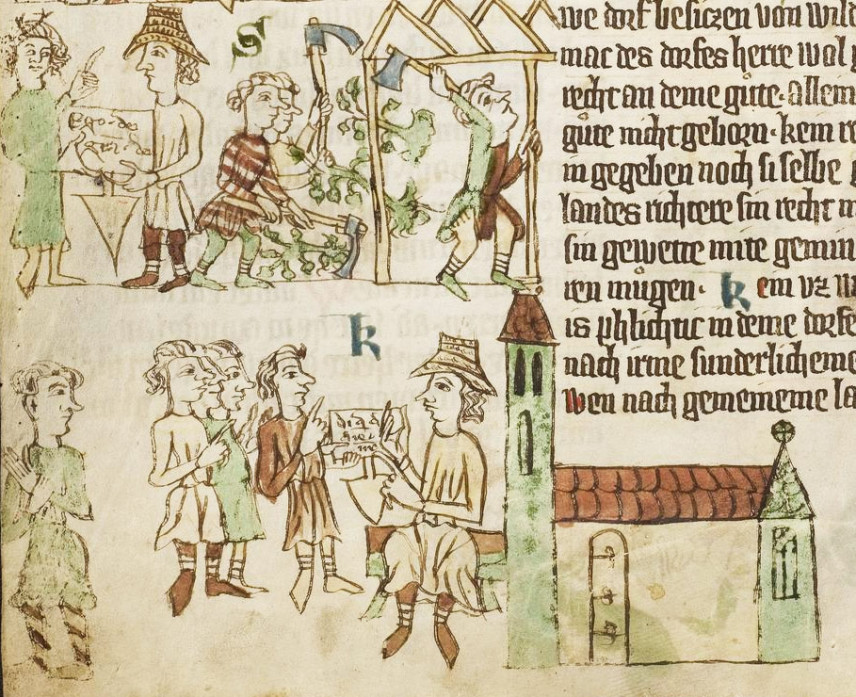 S
Ego · de
we dorf besiczen von wilde
mac des dorfes herre wol
recht an deme gute · allein
gute nicht geborn · kein
in gegeben noch si selbe
landes richtere sin recht
sin gewette mite
ren mugen · kein uz
k
is phlichtic in deme dorfe
nach irme sunderlicheme
wen nach gemeineme